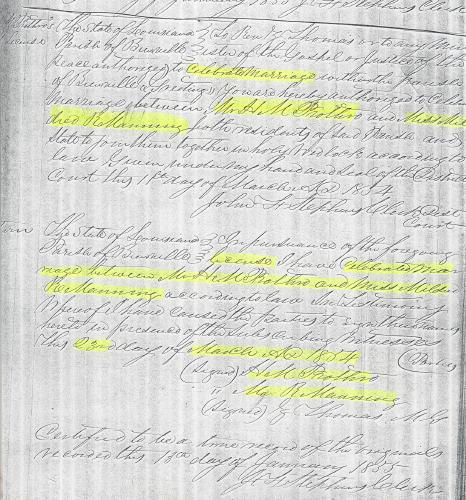 The State of Louisiana } To Rev. J Thomas or to any Min
Parish of Bienville } ister of the Gospel or Justice of the
Peace authorized to celebrate marriage within the Parish
of Bienville Greeting: You are hereby authorized to Cele
marriage between Mr H. M. Prothro and Miss Mil
dred R Manning both residents of said Parish and
State to join them together in holy Wedlock according to
law Given under my hand and seal of the District
Court this day of March AD 1854
John F Stephens Clerk Dist
Court
The State of Louisiana } In pursuance of the foregoing
Parish of Bienville } License I have Celebrated Mar
riage between Mr H. M. Prothro and Miss Mildre
R Manning according to law In Testimony
Whereof I hand caused the parties to sign their names
hereto in presence of the subscribing witnesses
This 23rd day of March AD 1854
(Signed) H. M. Prothro
" R Manning
(Signed) J Thomas. M.G
Certified to be a true record of the originals
recorded this day of January 1855